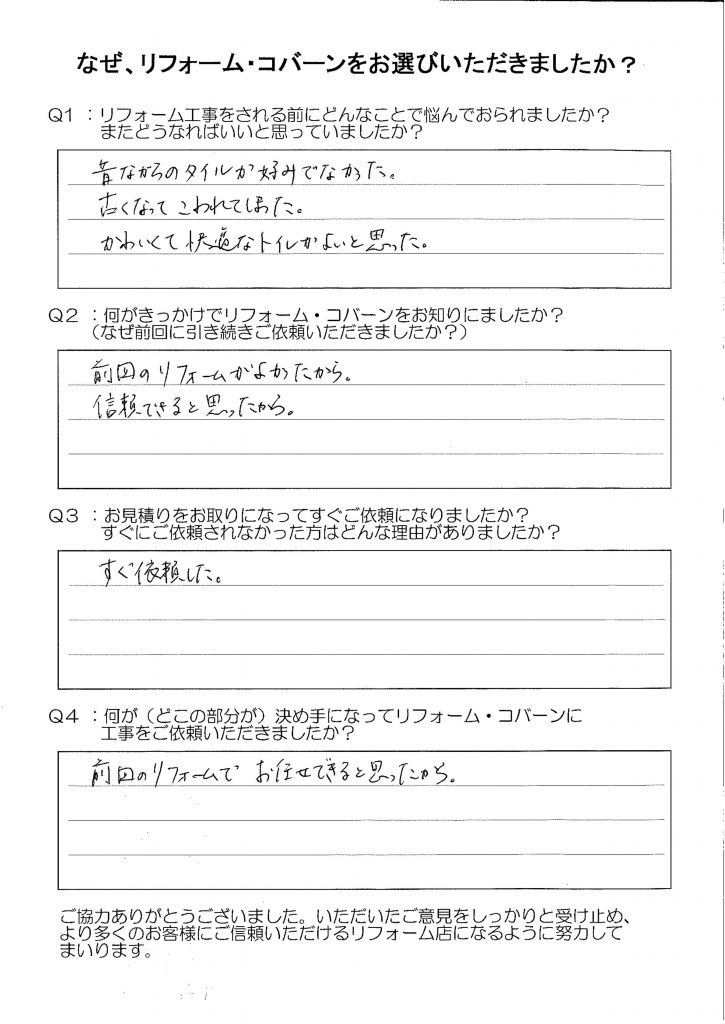 なぜ、リフォーム・コバーンをお選びいただきましたか？
Q1 ：リフォーム工事をされる前にどんなことで悩んでおられましたか？
またどうなればいいと思っていましたか？
昔ながらのタイルが好みでなかった。
古くなってこわれてしまった。
かわいくて快適なトイレがよいと思った。
Q2 ：何がきっかけでリフォーム・コバーンをお知りにましたか？
（なぜ前回に引き続きご依頼いただきましたか？）
前回のリフォームがよかったから。
信頼できると思ったから。
Q3 ：お見積りをお取りになってすぐご依頼になりましたか？
すぐにご依頼されなかった方はどんな理由がありましたか？
すぐ依頼した。
Q4 ：何が（どこの部分が）決め手になってリフォーム・コバーンに
工事をご依頼いただきましたか？
前回のリフォームで お任せできると思ったから。
ご協力ありがとうございました。いただいたご意見をしっかりと受け止め、
より多くのお客様にご信頼いただけるリフォーム店になるように努力して
まいります。